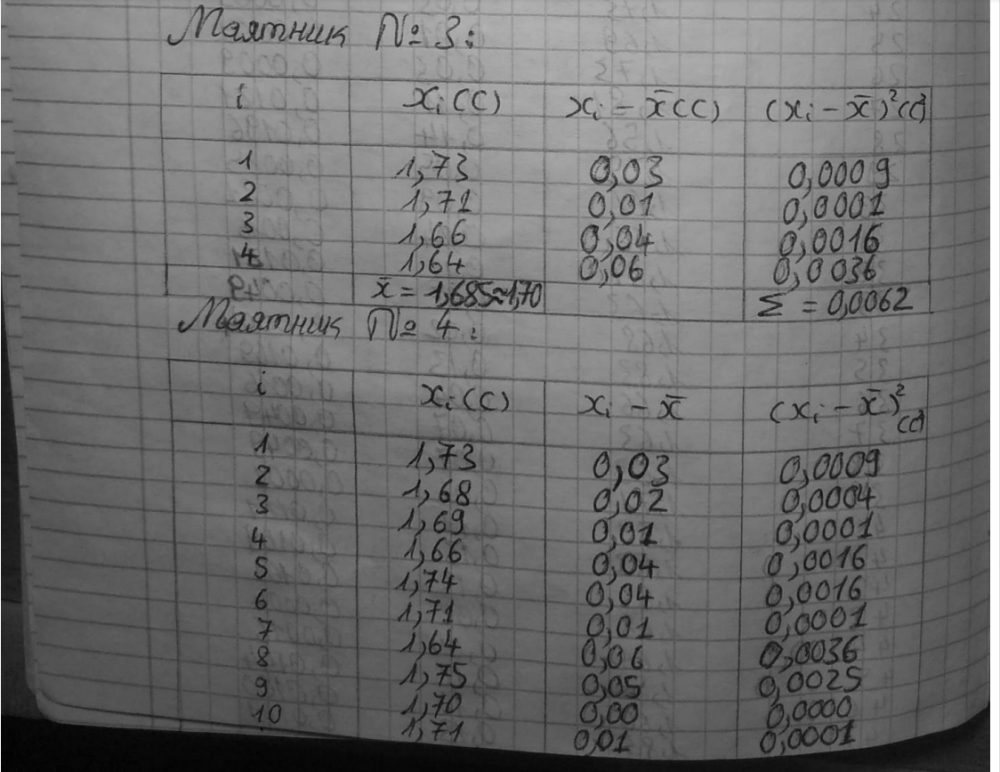 Маятник № 3:
i xᵢ(c) xᵢ - x̄(c) (xᵢ - x̄)²(c²)
1 1,73 0,03 0,0009
2 1,71 0,01 0,0001
3 1,66 0,04 0,0016
4 1,64 0,06 0,0036
x̄ = 1,685≈1,70 Σ = 0,0062
Маятник № 4:
i xᵢ(c) xᵢ - x̄ (xᵢ - x̄)² (c²)
1 1,73 0,03 0,0009
2 1,68 0,02 0,0004
3 1,69 0,01 0,0001
4 1,66 0,04 0,0016
5 1,74 0,04 0,0016
6 1,71 0,01 0,0001
7 1,64 0,06 0,0036
8 1,75 0,05 0,0025
9 1,70 0,00 0,0000
10 1,71 0,01 0,0001